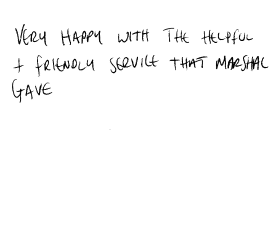 VERY HAPPY WITH THE HELPFUL
+ FRIENDLY SERVICE THAT MARSHAL
GAVE